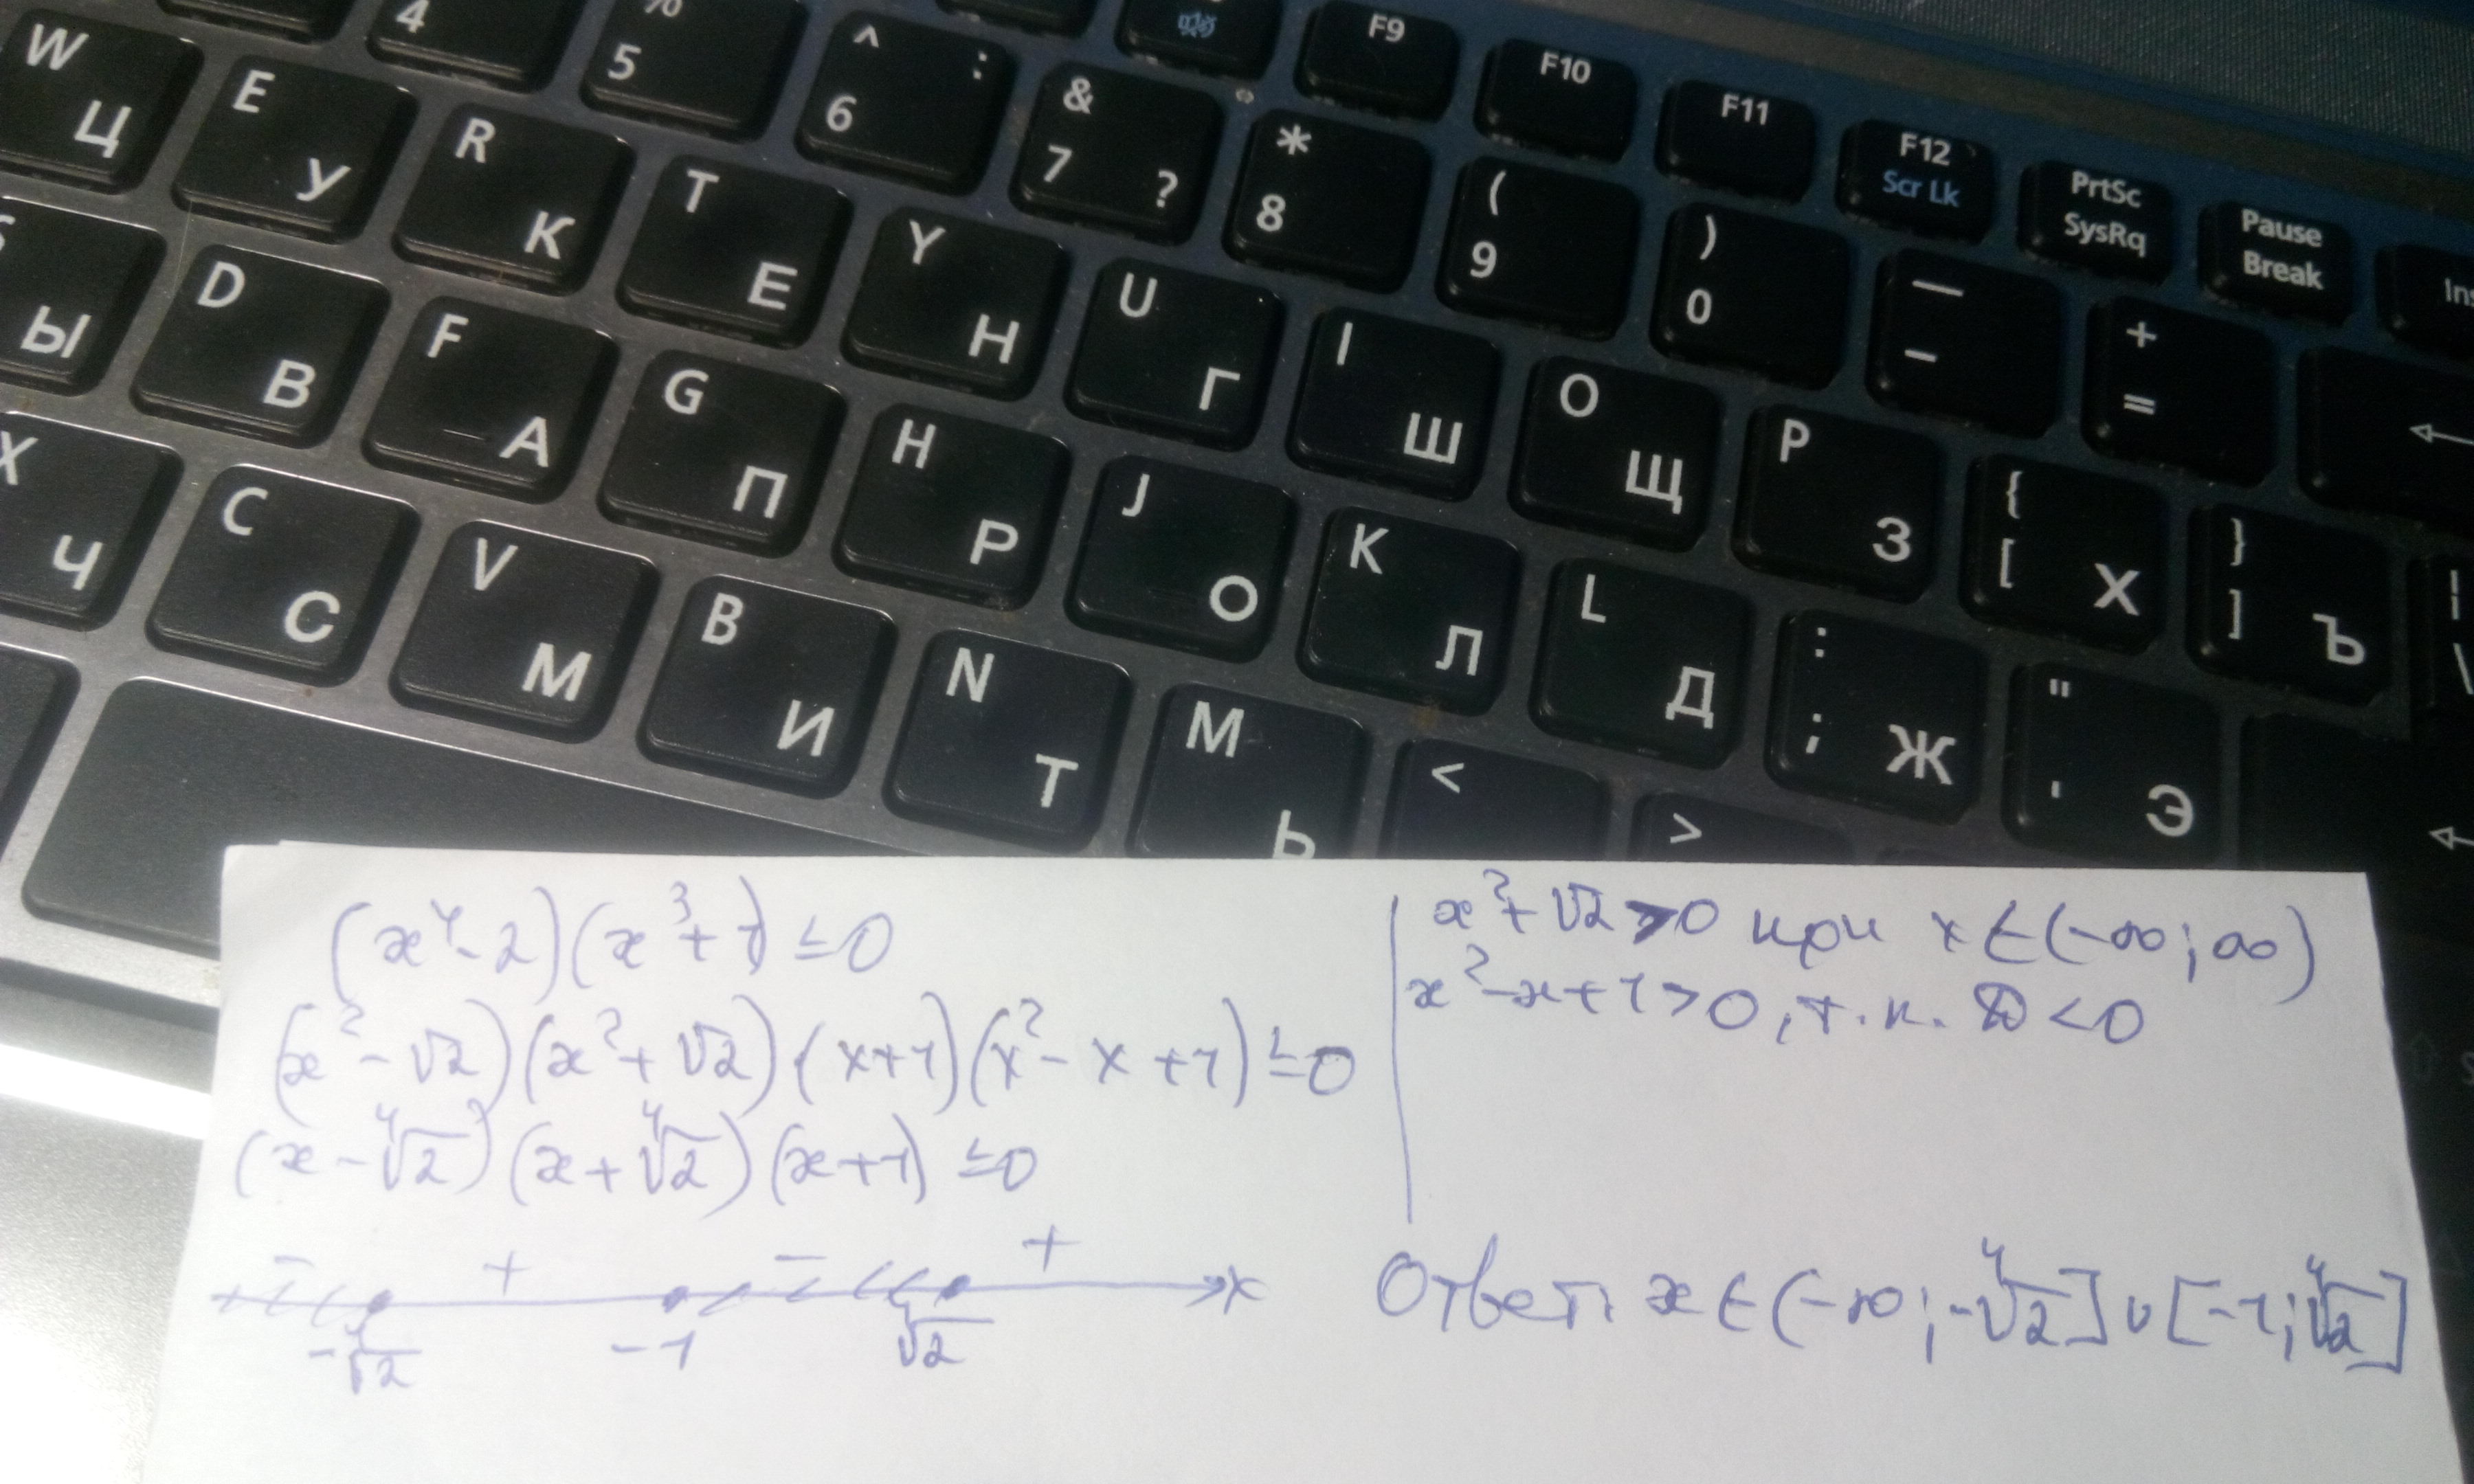 4 % 5 ^ : 6 & 7 ? * 8 ( 9 ) 0 — - + =
F9 F10 F11 F12 Scr Lk PrtSc SysRq Pause Break Ins
W Ц E У R К T Е Y Н U Г I Ш O Щ P З { [ Х } ] Ъ | \
S Ы D В F А G П H Р J О K Л L Д : ; Ж " ' Э
X Ч C С V М B И N Т M Ь < >
(x⁴-2)(x³+1) ≤0
(x²-√2)(x²+√2)(x+1)(x²-x+1)≤0
(x-⁴√2)(x+⁴√2)(x+1) ≤0
- + - + x
-⁴√2 -1 ⁴√2
x²+√2>0 при x∈(-∞;∞)
x²-x+1>0, т.к. D<0
Ответ: x∈(-∞;-⁴√2]∪[-1;⁴√2]